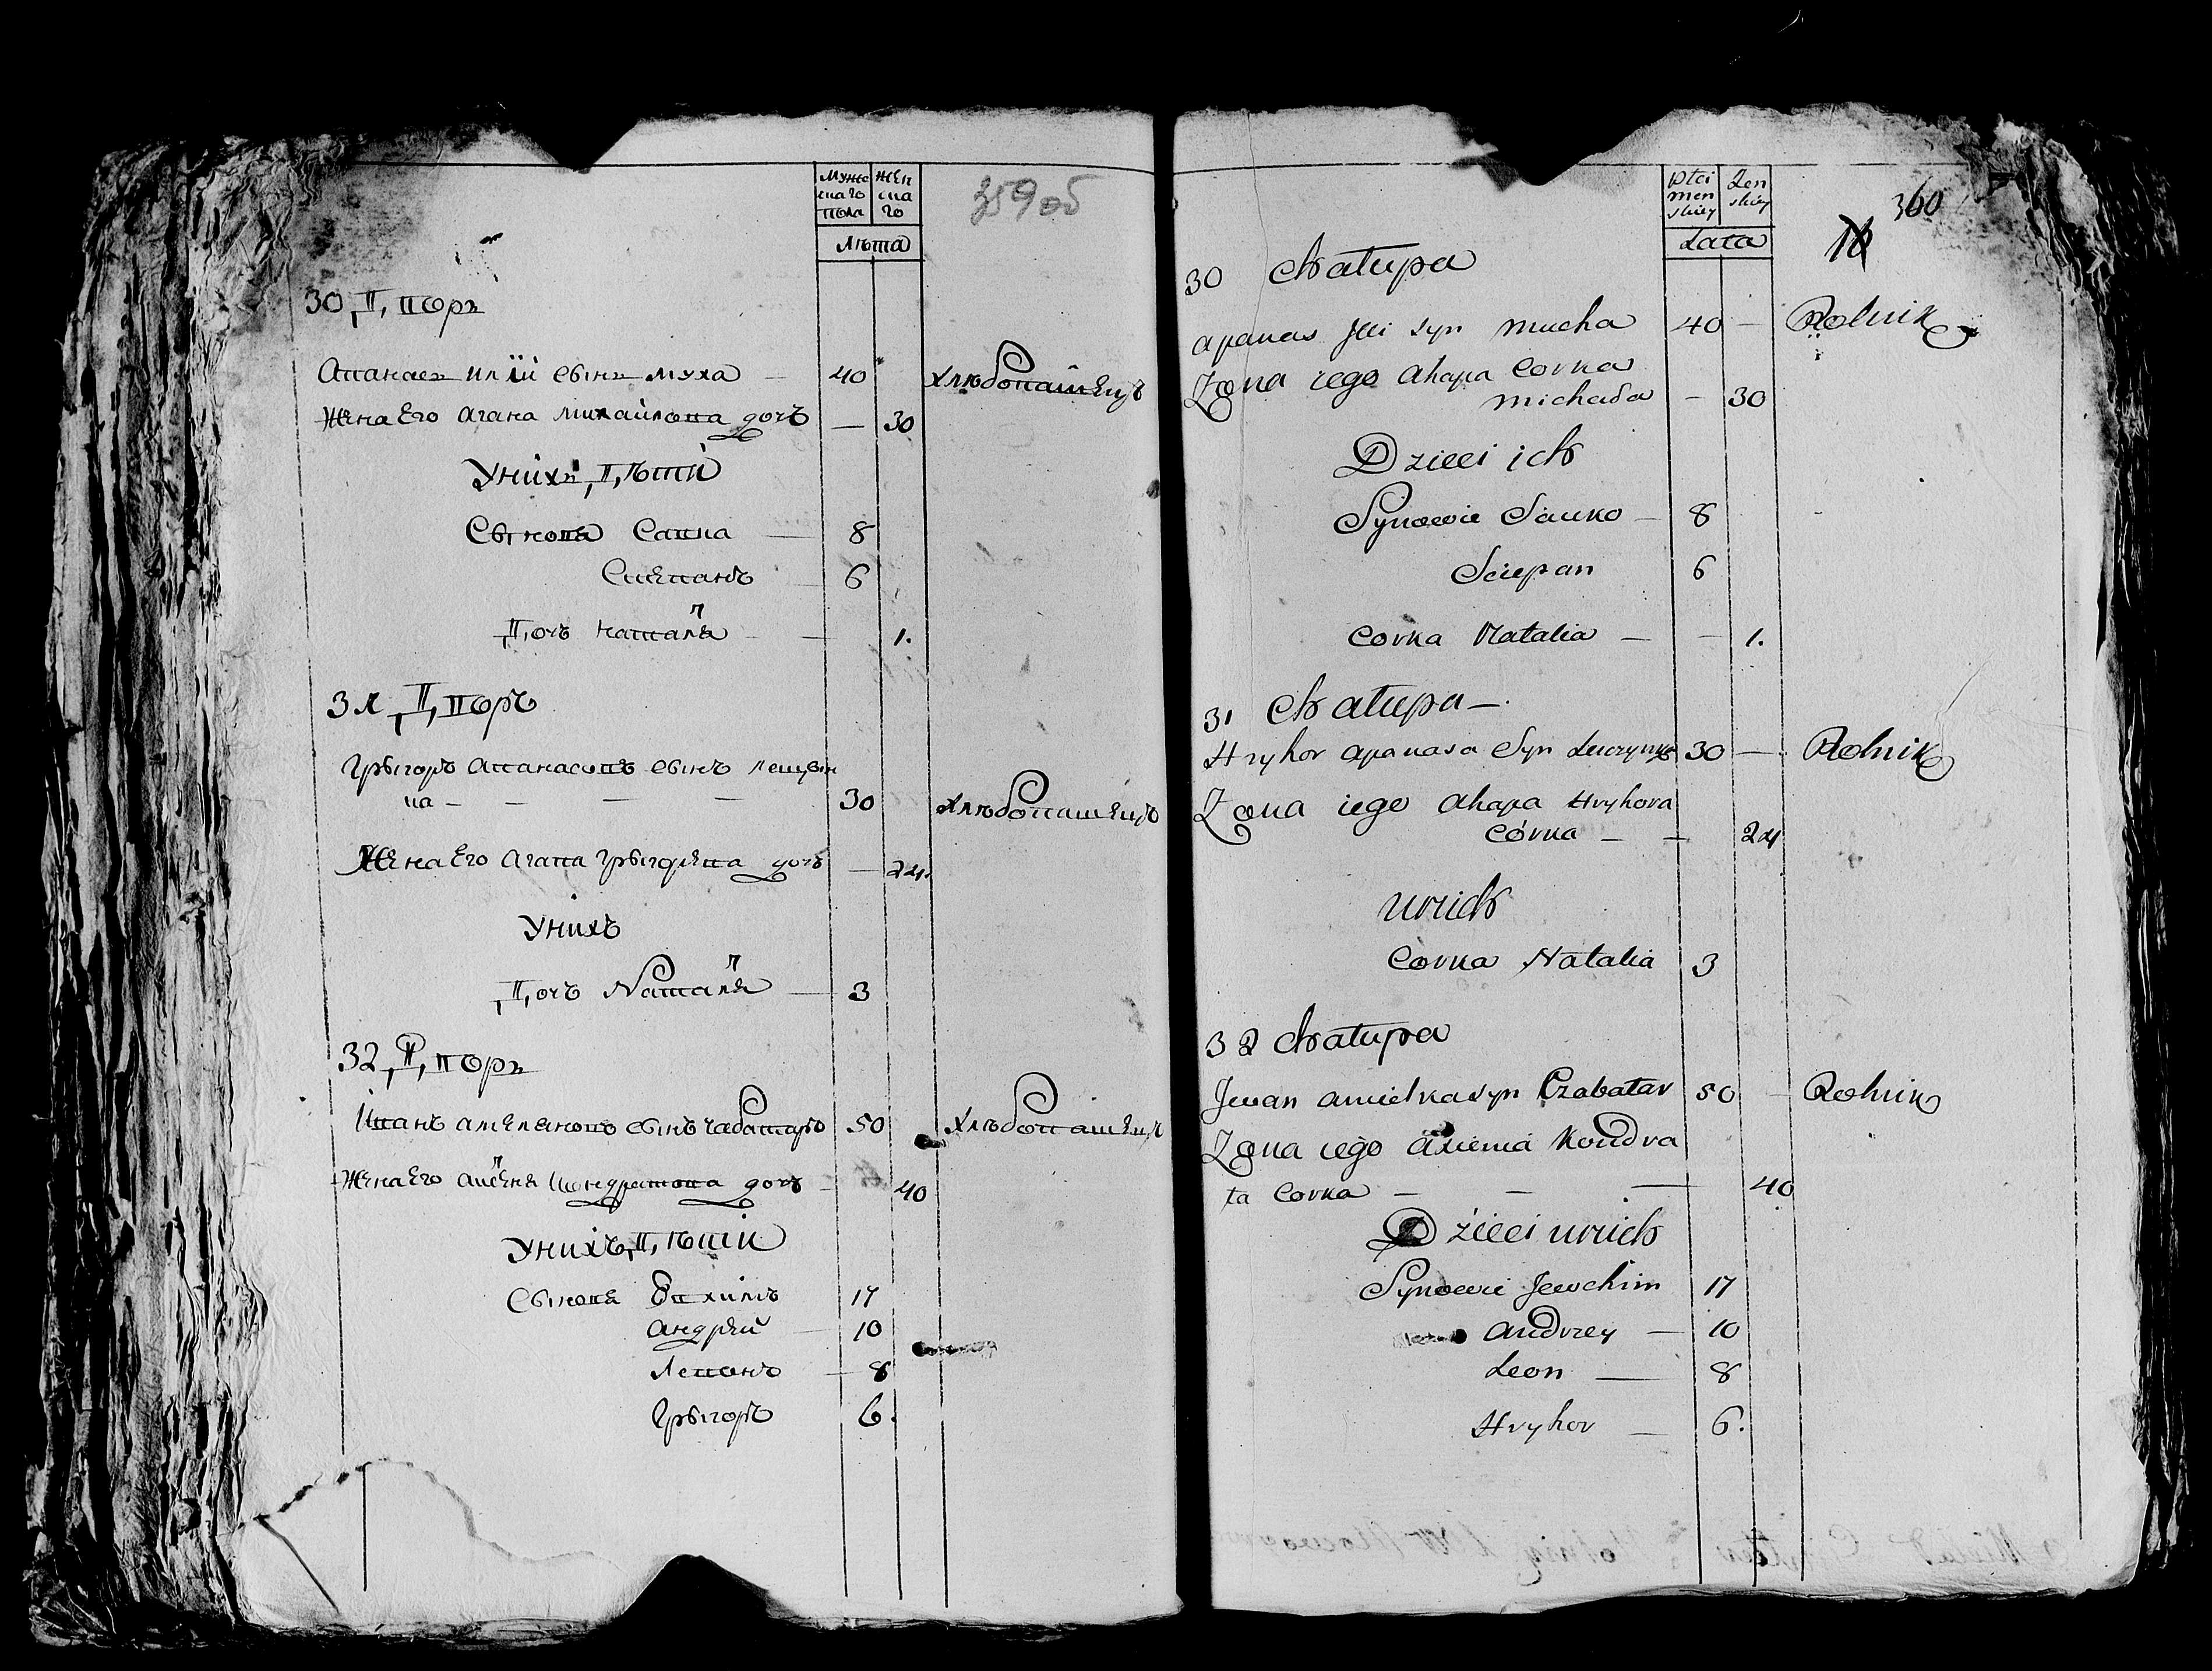 Мужс
каго
пола
Жен
ска
го
Лѣта
359 об
30 Дворъ
Апанасъ Илїи сынъ Муха — 40 Хлѣбопашецъ
Жена Его Агапа Михайлова дочь — 30
У нихъ Дѣти
Сынова Савка — 8
Степанъ 6
Дочь Наталя — — 1.
31 Дворъ
Грыгоръ Апанасовъ сынъ Левчин
ка — — — — 30 Хлѣбопашецъ
Жена Его Агапа Грыгорева дочь — 24.
У нихъ
Дочь Nаталя — 3
32 Дворъ
Иванъ Амеляновъ сынъ Чабатаръ 50 Хлѣбопашецъ
Жена Его Аксеня Кондратова дочь — 40
У нихъ Дѣти
Сынова Евхимъ 17
Андрей — 10
Леванъ — 8
Грыгоръ 6.
Płci
men
skiey
Zen
skiey
Lata
360
10
30 Chatupa
Apanas Jlii syn Mucha 40 — Rolnik
Zona iego Ahapa Corka
Michała — 30
Dzieci ich
Synowie Sauko — 8
Sciepan 6
Corka Natalia — — 1.
31 Chatupa —.
Hryhor Apanasa Syn Lewczynka 30 — Rolnik
Zona iego Ahapa Hryhora
Córka — — 24
u nich
Corka Natalia 3
32 Chatupa
Jwan Amielka syn Czabatar 50 — Rolnik
Zona iego Axienia Kondra
ta Corka — — — 40
Dzieci u nich
Synowie Jewchim 17
Andrzey — 10
Leon — 8
Hryhor — 6.